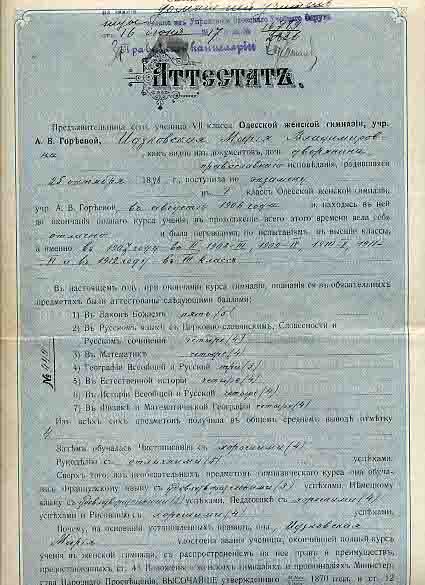 домашней учительницы
Управленія Одесскаго Учебнаго Округа
16 іюня 17
АТТЕСТАТЪ.
Предъявительница сего, ученица VII класса Одесской женской гимназіи, учр.
А. В. Горѣевой, Марія Владиміров-
на какъ видно изъ документовъ, дочь дворянина
православнаго исповѣданія, родившаяся
25 октября 18 г., поступила по экзамену
въ I классъ Одесской женской гимназіи,
учр. А. В. Горѣевой, въ августѣ 1906 года и находясь въ ней
до окончанія полнаго курса ученія, въ продолженіе всего этого времени вела себя
отлично и была переводима, по испытаніямъ, въ высшіе классы,
а именно въ 1907 году въ II, 1908-III, 1909-IV, 1910-V, 1911-
VI и въ 1912 году въ VII классъ
Въ настоящемъ году, при окончаніи курса гимназіи, познанія ея въ обязательныхъ
предметахъ были аттестованы слѣдующими баллами:
1) Въ Законѣ Божіемъ пять (5)
2) Въ Русскомъ языкѣ съ Церковно-славянскимъ, Словесности и
Русскомъ сочиненіи четыре (4)
3) Въ Математикѣ четыре (4)
4) Географіи Всеобщей и Русской три (3)
5) Въ Естественной исторіи четыре (4)
6) Въ Исторіи Всеобщей и Русской четыре (4)
7) Въ Физикѣ и Математической Географіи четыре (4)
Изъ всѣхъ сихъ предметовъ получила въ общемъ среднемъ выводѣ отмѣтку
4
Затѣмъ обучалась Чистописанію съ хорошими (4)
Рукодѣлію съ отличными (5) успѣхами.
Сверхъ того изъ необязательныхъ предметовъ гимназическаго курса она обуча-
лась Французскому языку съ удовлетворительными (3) успѣхами, Нѣмецкому
языку съ удовлетворительными (3) успѣхами, Педагогикѣ съ хорошими (4)
успѣхами и Рисованію съ хорошими (4) успѣхами.
Почему, на основаніи установленныхъ правилъ, она,
Марія удостоена званія ученицы, окончившей полный курсъ
ученія въ женской гимназіи, съ распространеніемъ на нее правъ и преимуществъ,
предоставленныхъ ст. 45 Положенія о женскихъ гимназіяхъ и прогимназіяхъ Министерства
Народнаго Просвѣщенія, ВЫСОЧАЙШЕ утвержденнаго 1870 г. и ст. 12